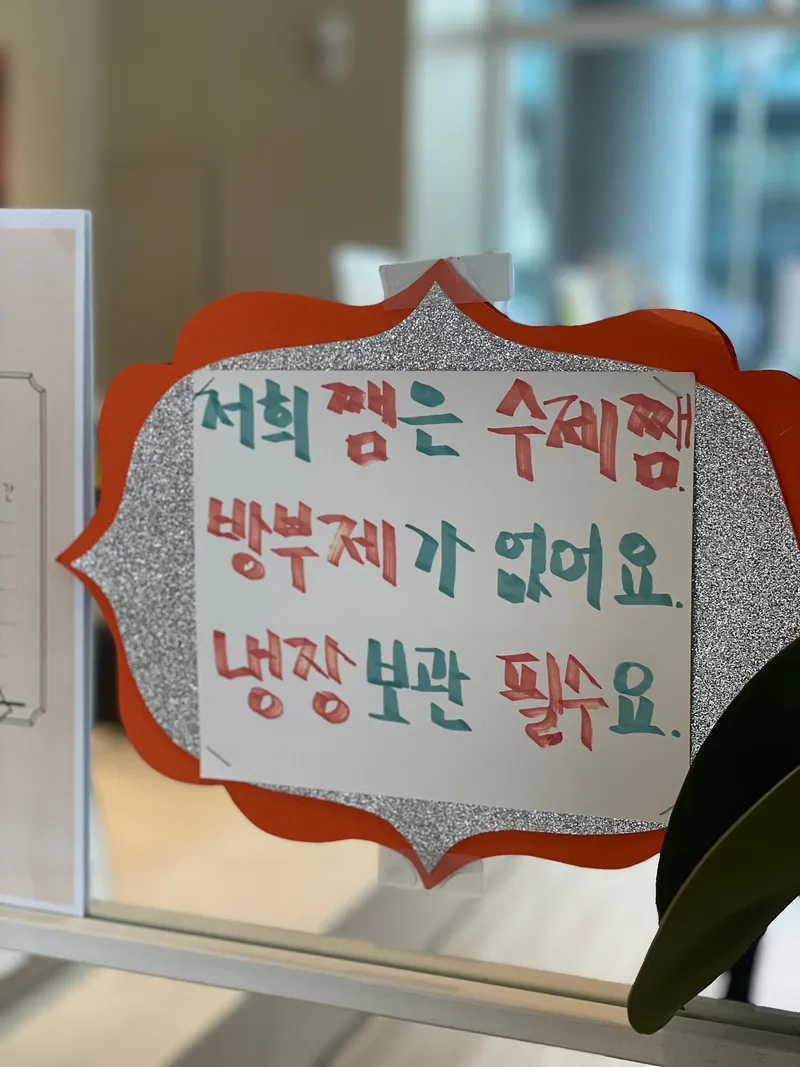 저희 쨈은 수제쨈.
방부제가 없어요.
냉장보관 필수요.
간